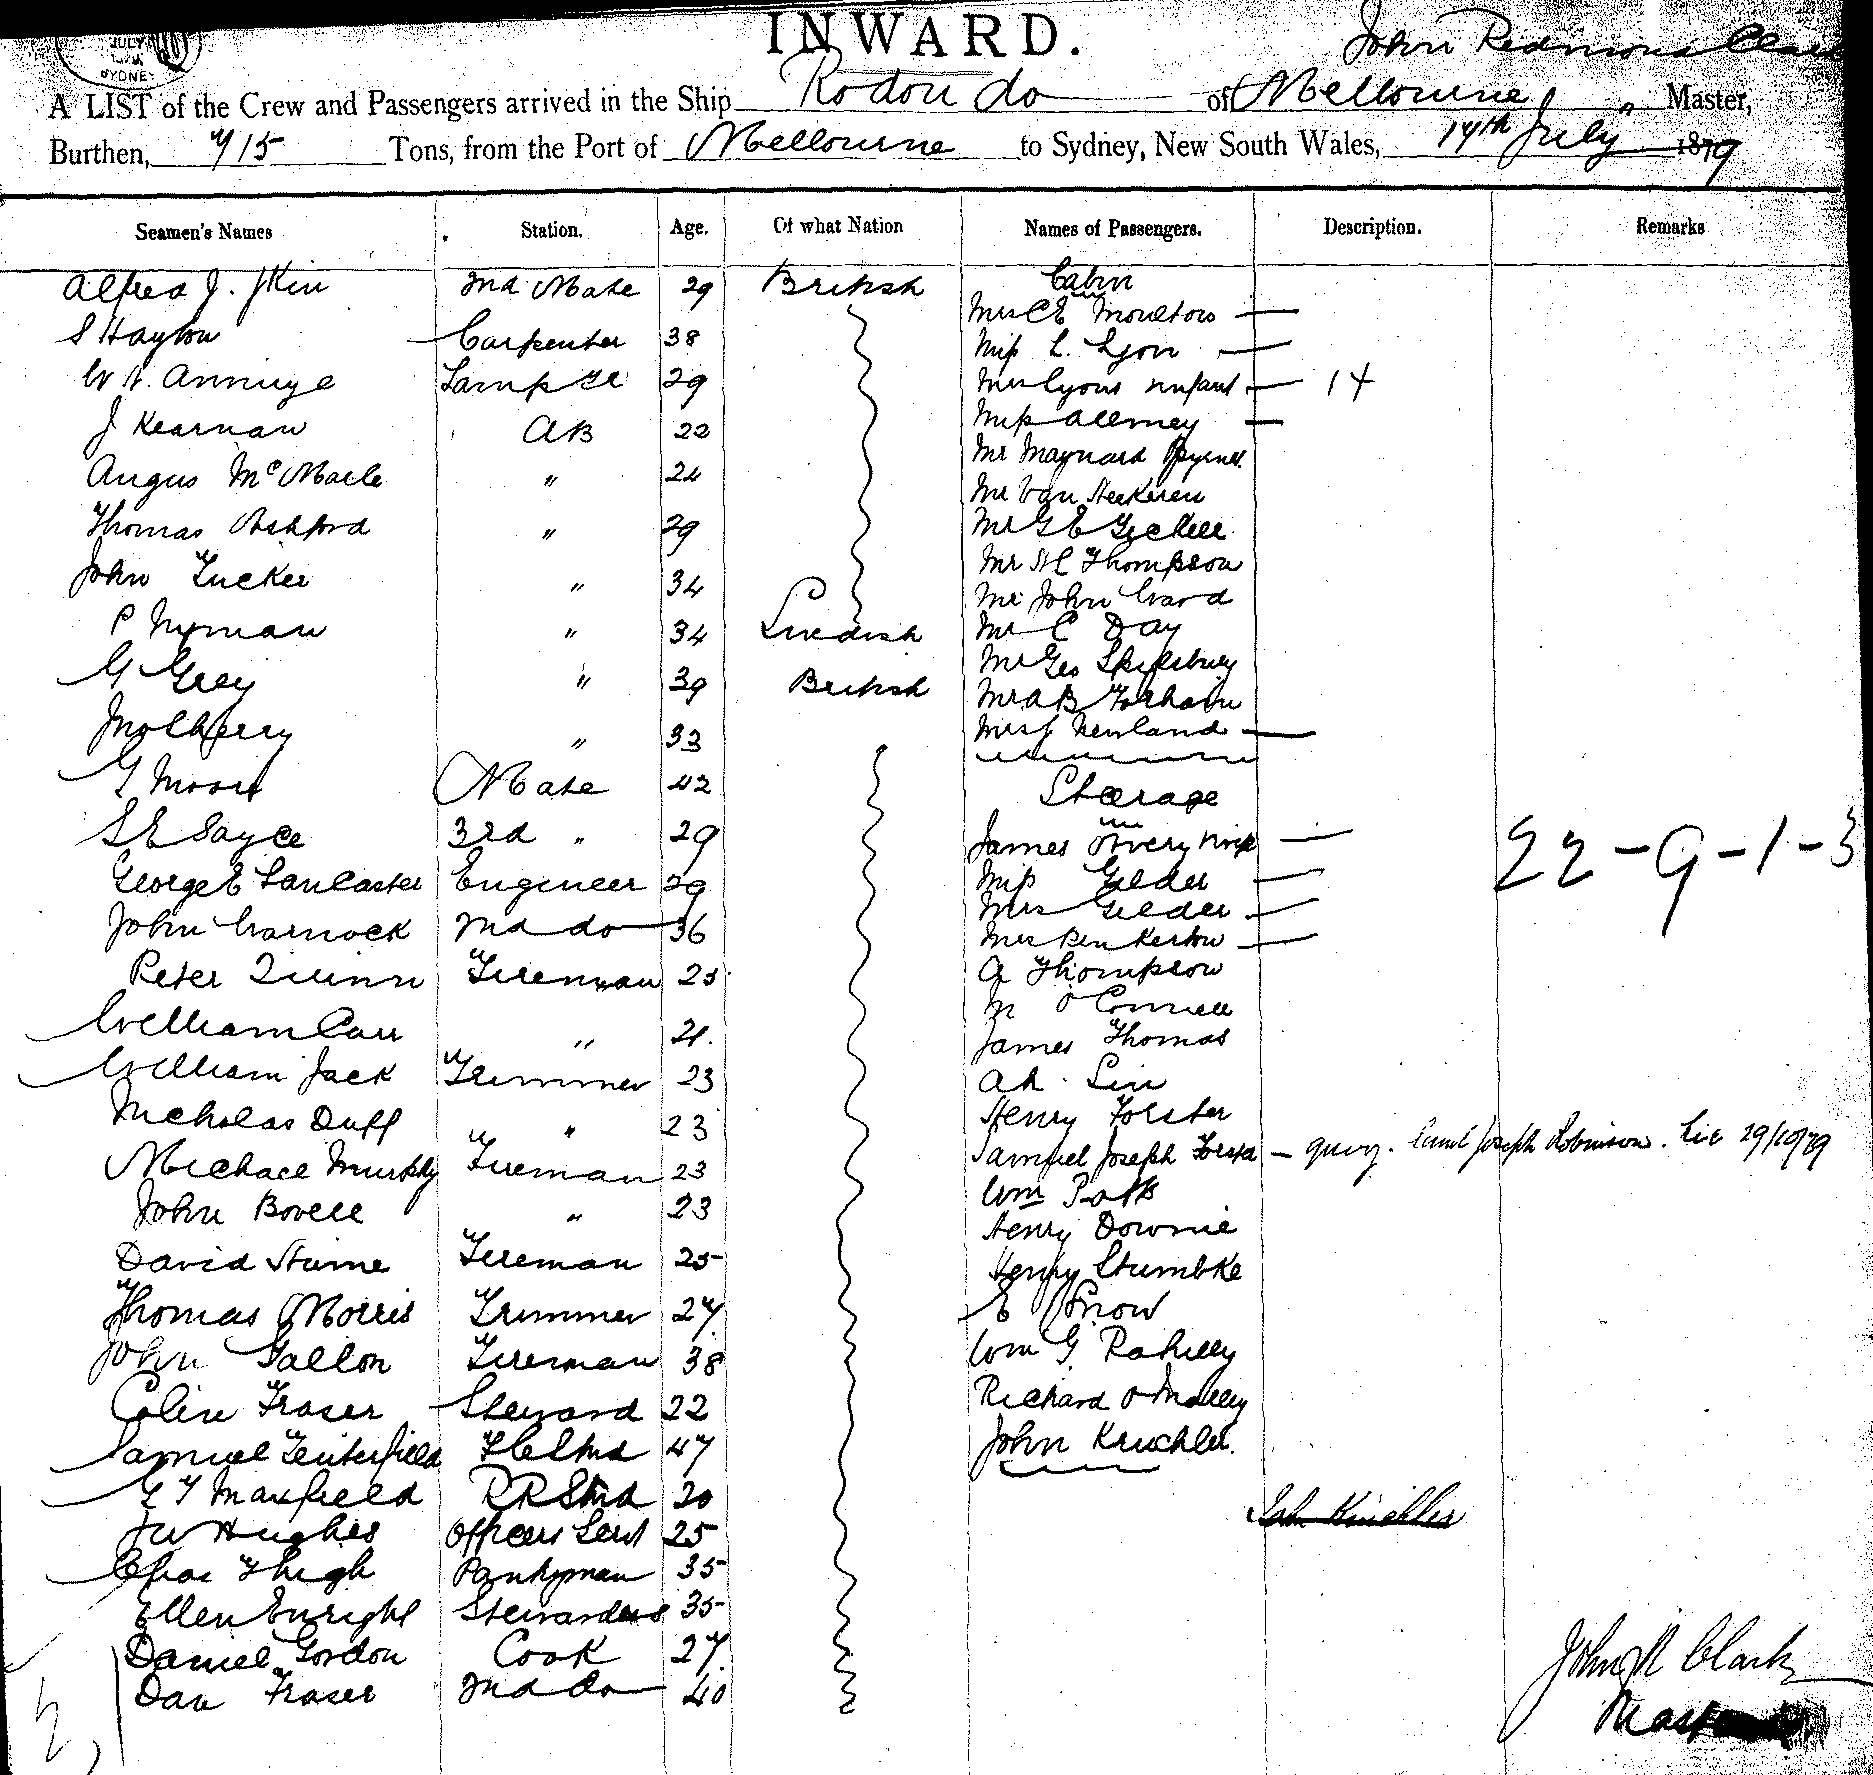 JULY
SYDNEY
INWARD.
John Redmond Clark
A LIST of the Crew and Passengers arrived in the Ship Rodondo of Melbourne " Master,
Burthen, 715 Tons, from the Port of Melbourne to Sydney, New South Wales, 14th July 1879
Seamen's Names Station. Age. Of what Nation Names of Passengers. Description. Remarks
Alfred J. 2nd Mate 29 British Cabin
Mrs C E Moulton —
S Hayton Carpenter 38 Miss L. Lyon —
W N. Lamp 29 Mrs Lyons infant — 14
J Kearnan AB 22 Miss —
Angus Mc " 24 Mr Maynard
Mr Van Heekeren
Thomas Ashford " 29 Mr G E
Mr Thompson
John Tucker " 34 Mr John Ward
P Nyman " 34 Swedish Mr C Day
Mr Geo
G Grey " 39 British Mr A B
" 33 Mrs J Newland —
G Moore Mate 42 Steerage
S E Sayce 3rd " 29 James Avery —
22-9-1-3
George E Lancaster Engineer 29 Miss Gelder —
Mrs Gelder —
John Warnock 2nd do 36 Mrs Penkerton —
Peter Quinn Fireman 25 A Thompson
M O'Connell
William Carr " 21. James Thomas
William Jack Trimmer 23 Ah
Nicholas Duff " 23 Henry Forster
Michael Murphy Fireman 23 Samuel Joseph — query. Saml Joseph Robinson. 29/10/79
John Bovell " 23 Wm Potts
Henry Downie
David Hume Fireman 25 Henry Stumbke
Thomas Morris Trimmer 27 E Snow
John Gallon Fireman 38 Wm G. Rahilly
Colin Fraser Steward 22 Richard O'Malley
Samuel Tenterfield 47 John Kruchler.
G T Maxfield 20
J W Hughes Officers Servt 25 John Kruchler
Chas Pantryman 35
Ellen Enright Stewardess 35
Daniel Gordon Cook 27
Dan Fraser 2nd do 40
John R Clark
Master